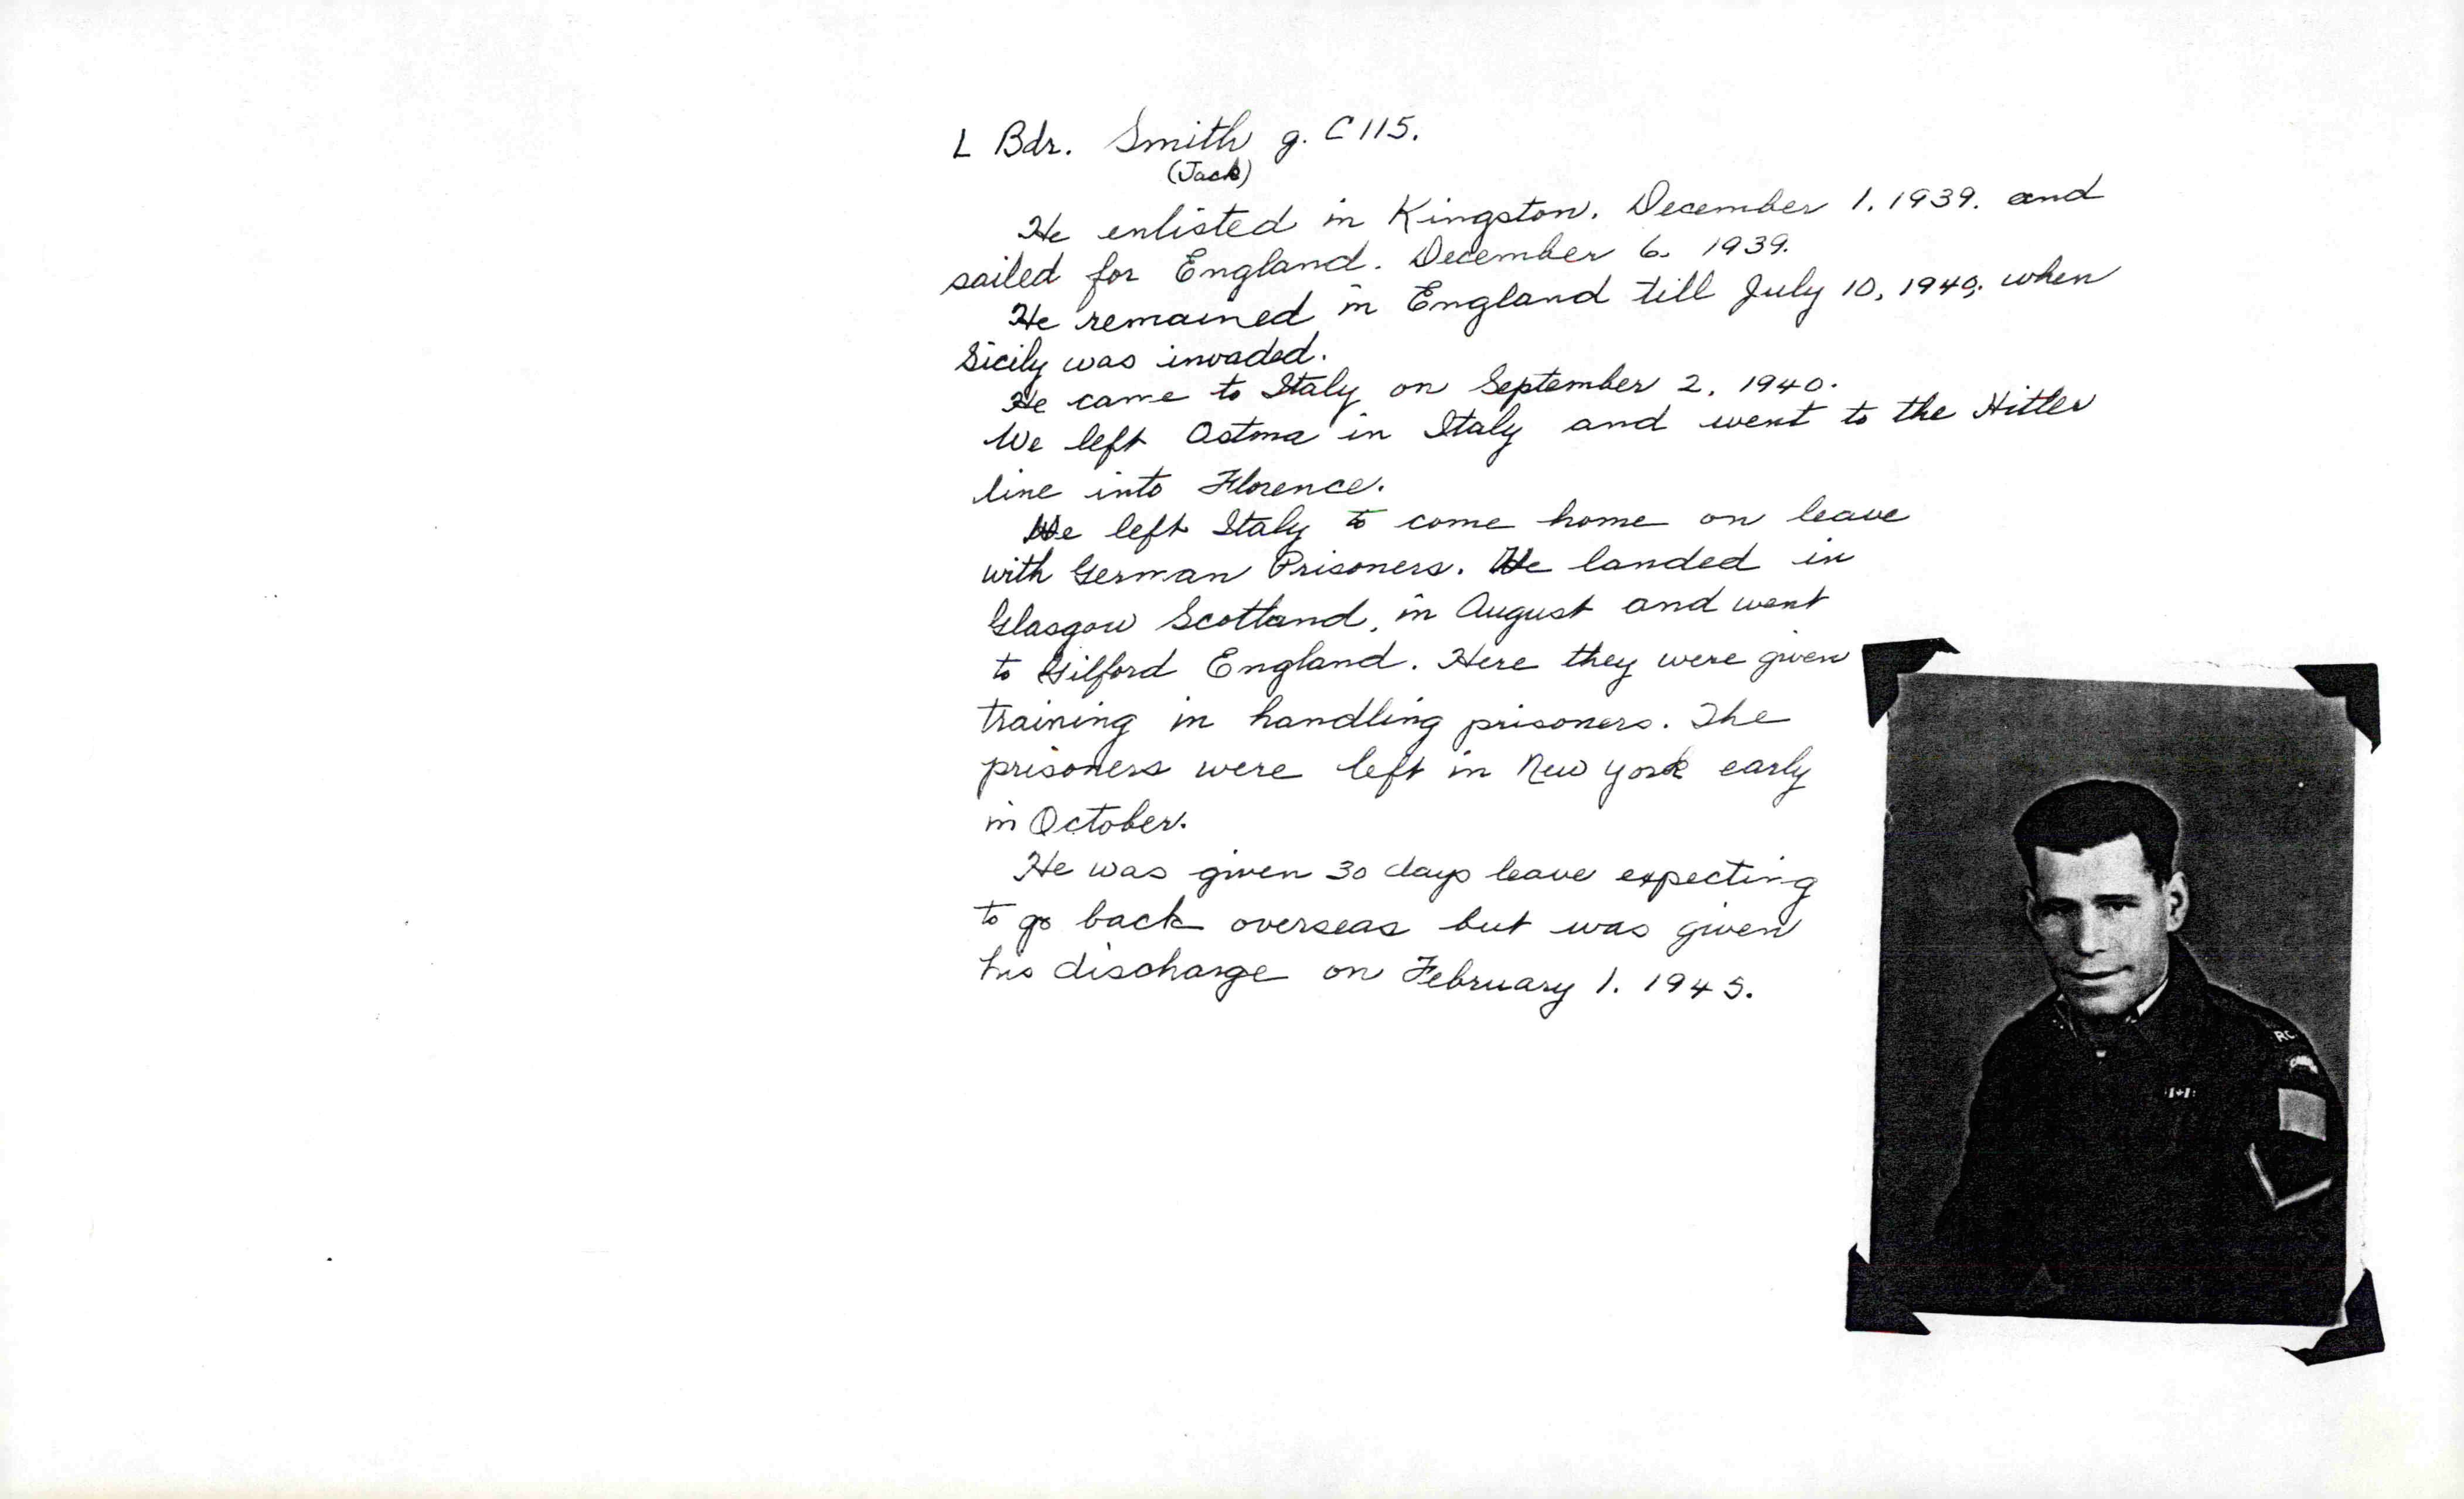 L Bdr. Smith g. C115.
(Jack)
He enlisted in Kingston. December 1. 1939. and
sailed for England. December 6. 1939.
He remained in England till July 10, 1940. when
Sicily was invaded.
He came to Italy on September 2, 1940.
We left in Italy and went to the Hitler
line into Florence.
He left Italy to come home on leave
with German Prisoners. He landed in
Glasgow Scotland, in August and went
to Gilford England. Here they were given
training in handling prisoners. The
prisoners were left in New York early
in October.
He was given 30 days leave expecting
to go back overseas but was given
his discharge on February 1. 1945.
RC